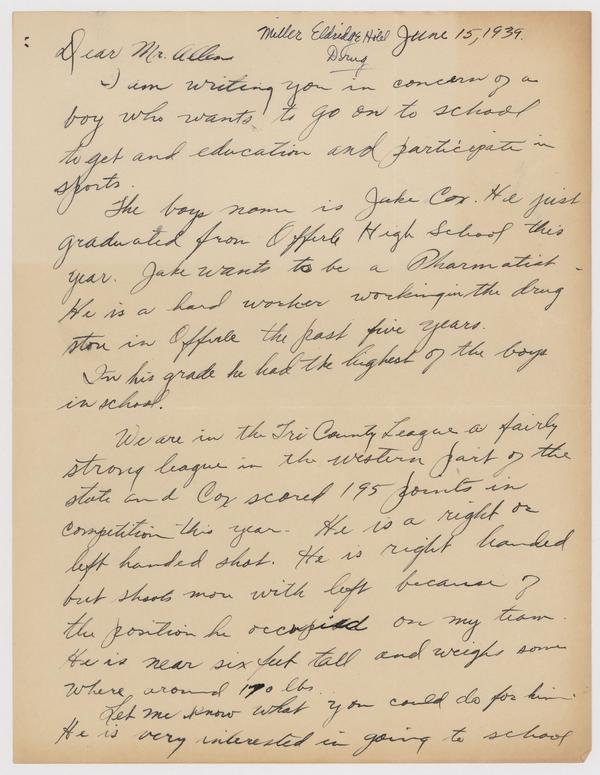 Miller Eldridge Hotel June 15, 1939.
Dear Mr. Allen Drug
I am writing you in concern of a
boy who wants to go on to school
to get and education and participate in
sports.
The boys name is Jake Cox. He just
graduated from Offerle High School this
year. Jake wants to be a Pharmatist -
He is a hard worker working in the drug
store in Offerle the past five years.
In his grade he had the highest of the boys
in school.
We are in the Tri County League a fairly
strong league in the western part of the
state and Cox scored 195 points in
competition this year. He is a right or
left handed shot. He is right handed
but shoots more with left because of
the position he occupied on my team.
He is near six feet tall and weighs some
where around 170 lbs.
Let me know what you could do for him.
He is very interested in going to school